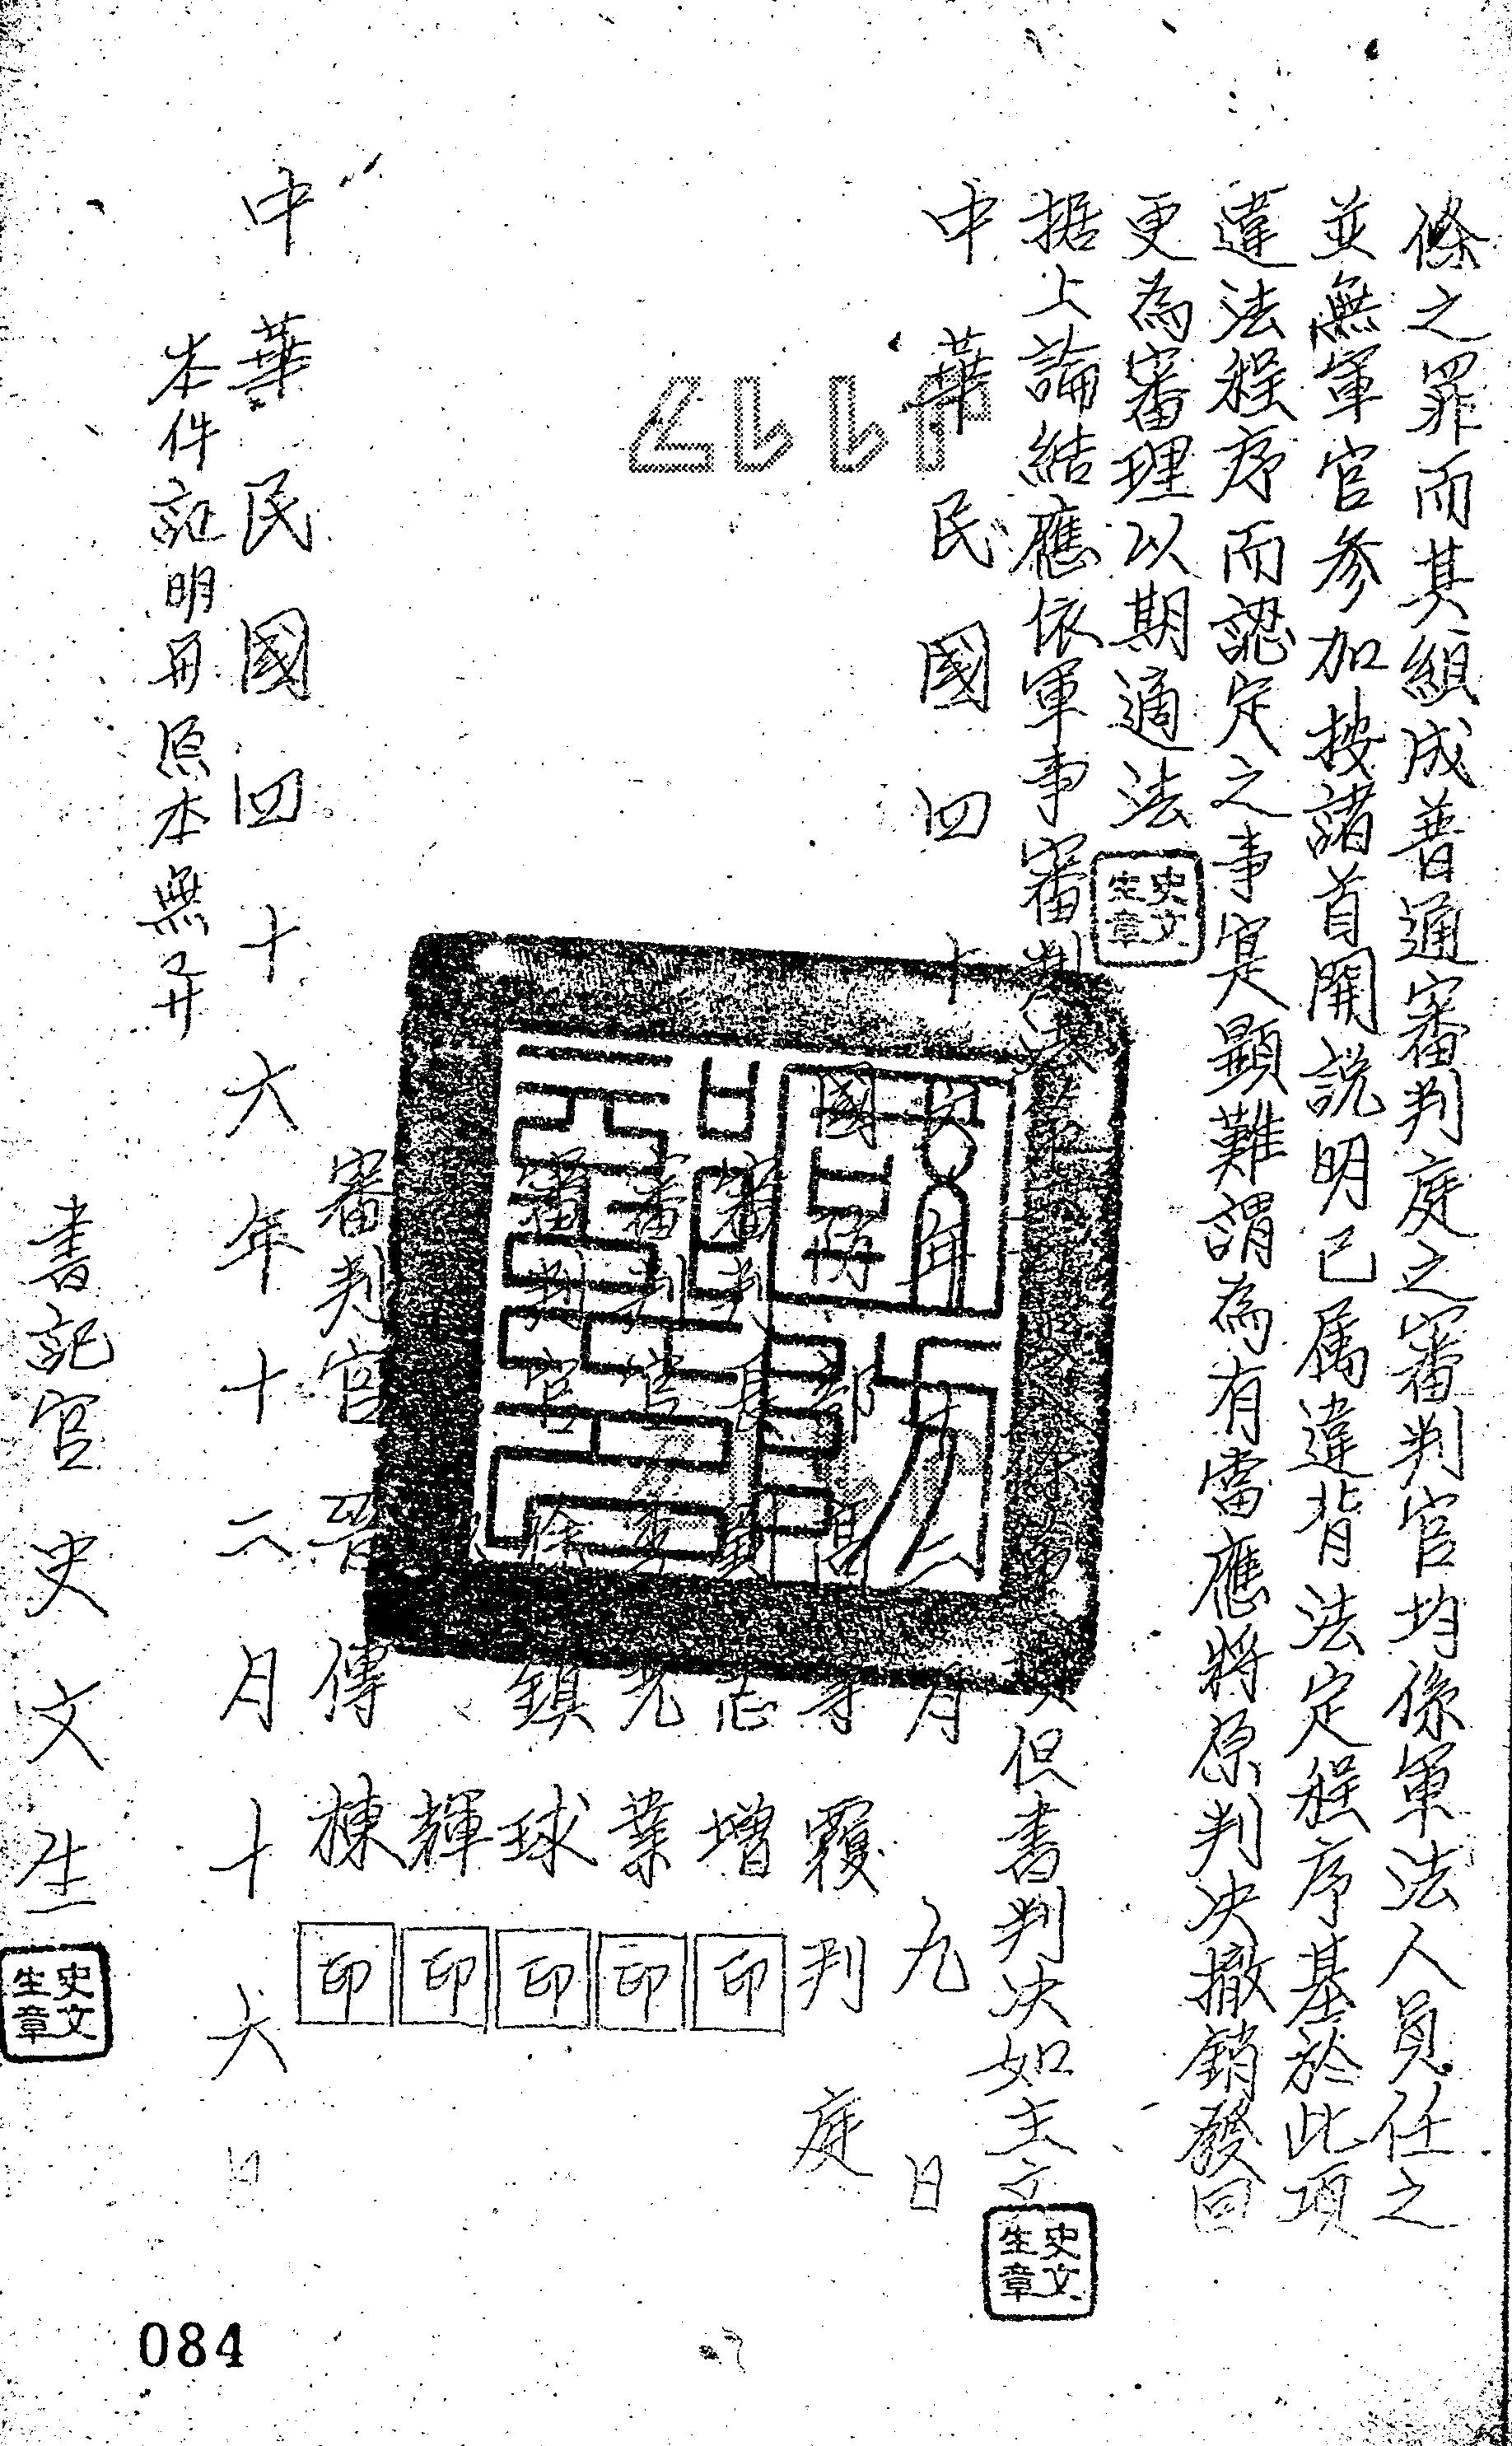 條之罪而其組成普通審判庭之審判官均係軍法人員任之
並無軍官參加按諸首開説明已属違背法定程序基於此項
違法程序而認定之事寔顯難謂為有當應將原判决撤銷發回
更為審理以期適法
史文生章
据上論結應依軍事審判法第 條 第 項但書判决如主文
史文生章
中華民國四十六年十二月九日
國防部高等覆判庭
審判長 志增 印
審判官 光業 印
審判官 徐鎮球 印
輝 印
審判官 晋傳棟 印
中華民國四十六年十二月十六日
本件証明與原本無異
書記官 史文生
史文生章
084